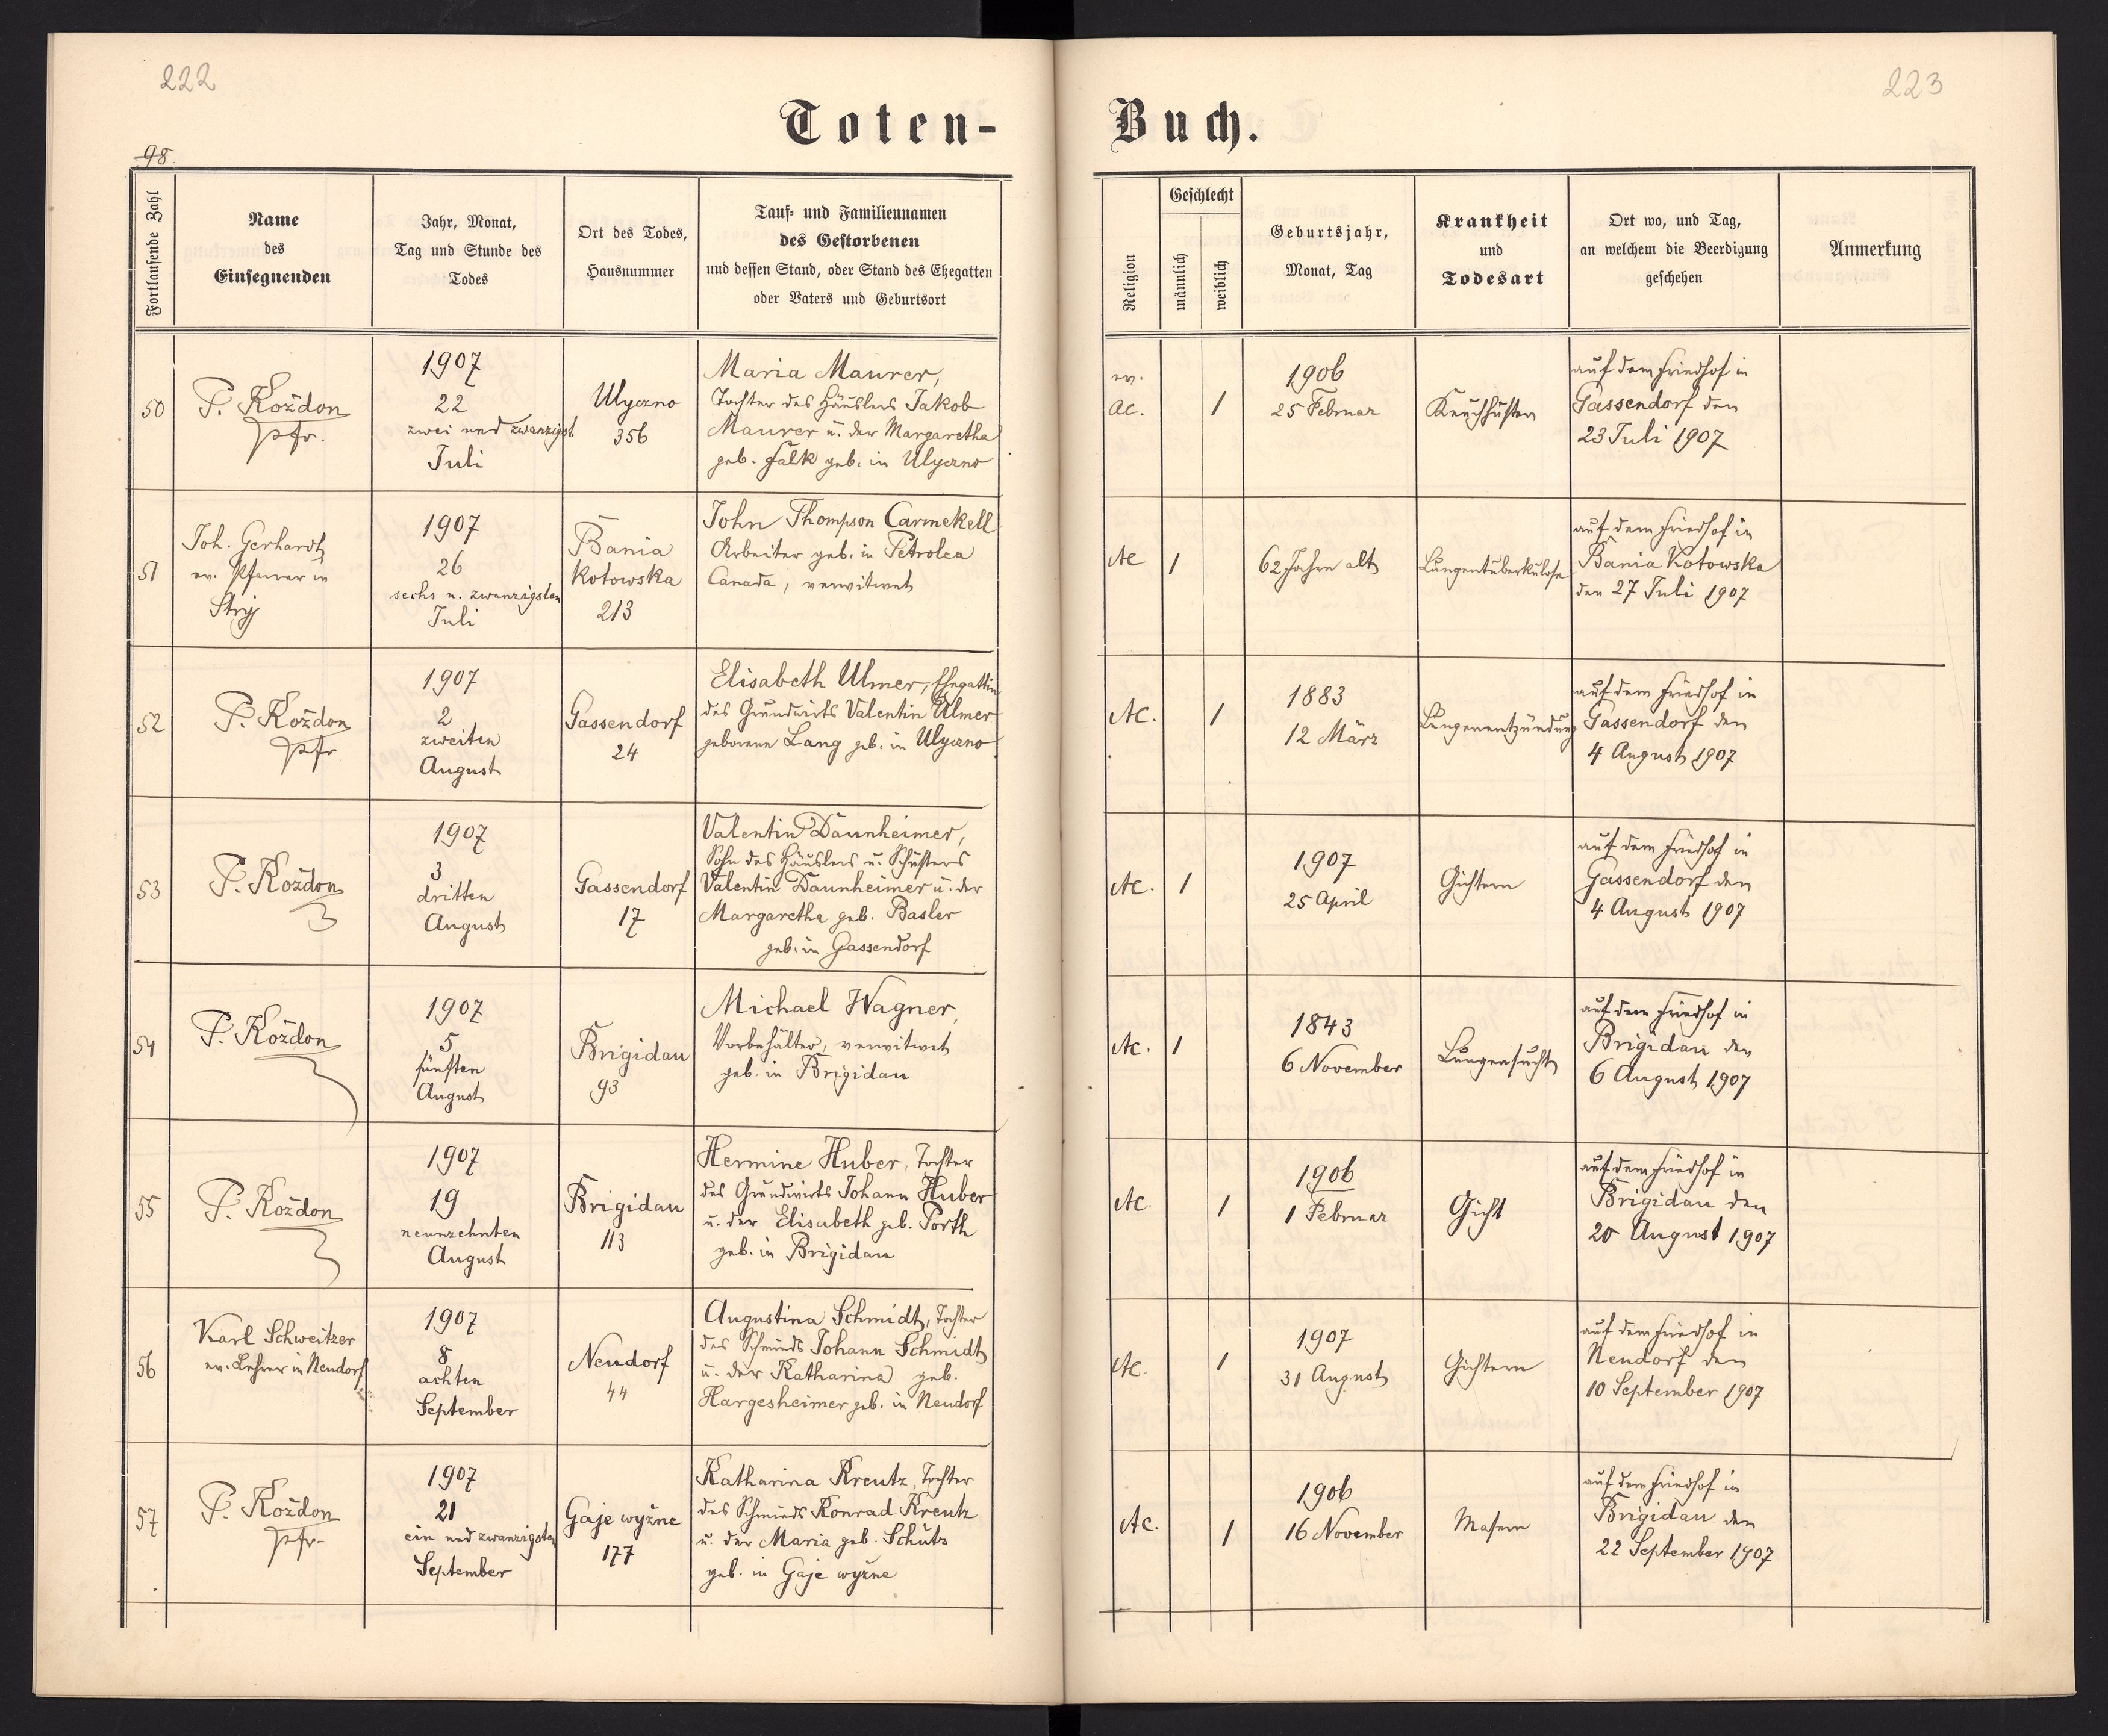 222
223
Toten-
Buch.
98.
Fortlaufende Zahl
Name
des
Einsegnenden
Jahr, Monat,
Tag und Stunde des
Todes
Ort des Todes,
Hausnummer
Tauf- und Familiennamen
des Gestorbenen
und dessen Stand, oder Stand des Ehegatten
oder Vaters und Geburtsort
Religion
Geschlecht
männlich
weiblich
Geburtsjahr,
Monat, Tag
Krankheit
und
Todesart
Ort wo, und Tag,
an welchem die Beerdigung
geschehen
Anmerkung
50
P. Kożdon
Pfr.
1907
22
zwei und zwanzigst.
Juli
Ulyczno
356
Maria Maurer,
Tochter des Häuslers Jakob
Maurer u. der Margaretha
geb. Falk geb. in Ulyczno
ev.
AC.
1
1906
25 Februar
Keuchhusten
auf dem Friedhof in
Gassendorf den
23 Juli 1907
51
Joh. Gerhardt
ev. Pfarrer in
Stryj
1907
26
sechs u. zwanzigsten
Juli
Bania
Kotowska
213
John Thompson Carmekell
Arbeiter geb. in Petrolea
Canada, verwitwet
AC
1
62 Jahre alt
Lungentuberkulose
auf dem Friedhof in
Bania Kotowska
den 27 Juli 1907
52
P. Kożdon
Pfr
1907
2
zweiten
August
Gassendorf
24
Elisabeth Ulmer, Ehegattin
des Grundwirts Valentin Ulmer
geborene Lang geb. in Ulyczno
AC.
1
1883
12 März
Lungenentzündung
auf dem Friedhof in
Gassendorf den
4 August 1907
53
P. Kożdon
1907
3
dritten
August
Gassendorf
17
Valentin Daunheimer,
Sohn des Häuslers u. Schusters
Valentin Daunheimer u. der
Margaretha geb. Basler
geb. in Gassendorf
AC.
1
1907
25 April
Gichtern
auf dem Friedhof in
Gassendorf den
4 August 1907
54
P. Kożdon
1907
5
fünften
August
Brigidau
93
Michael Wagner,
Vorbehälter, verwitwet
geb. in Brigidau
AC.
1
1843
6 November
Lungensucht
auf dem Friedhof in
Brigidau den
6 August 1907
55
P. Kożdon
1907
19
neunzehnten
August
Brigidau
113
Hermine Huber, Tochter
des Grundwirts Johann Huber
u. der Elisabeth geb. Porth
geb. in Brigidau
AC.
1
1906
1 Februar
Gicht
auf dem Friedhof in
Brigidau den
20 August 1907
56
Karl Schweitzer
ev. Lehrer in Neudorf
1907
8
achten
September
Neudorf
44
Augustina Schmidt, Tochter
des Schmieds Johann Schmidt
u. der Katharina geb.
Hargesheimer geb. in Neudorf
AC.
1
1907
31 August
Gichtern
auf dem Friedhof in
Neudorf den
10 September 1907
57
P. Kożdon
Pfr.
1907
21
ein und zwanzigsten
September
Gaje wyżne
177
Katharina Kreutz, Tochter
des Schmieds Konrad Kreutz
u. der Maria geb. Schütz
geb. in Gaje wyżne
AC.
1
1906
16 November
Masern
auf dem Friedhof in
Brigidau den
22 September 1907